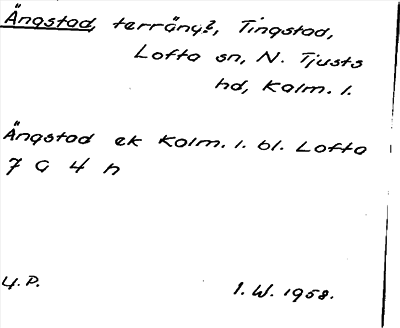 Ängstad, terräng?, Tingstad,
Lofta sn, N. Tjusts
hd, Kalm. l.
Ängstad ek Kalm. l. bl. Lofta
7 G 4 h
4.P.
I.W. 1958.